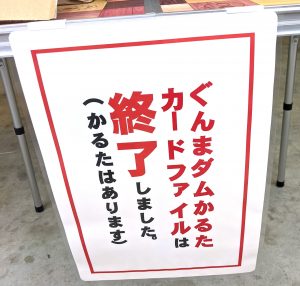 ぐんまダムかるた
カードファイルは
終了しました。
(かるたはあります)